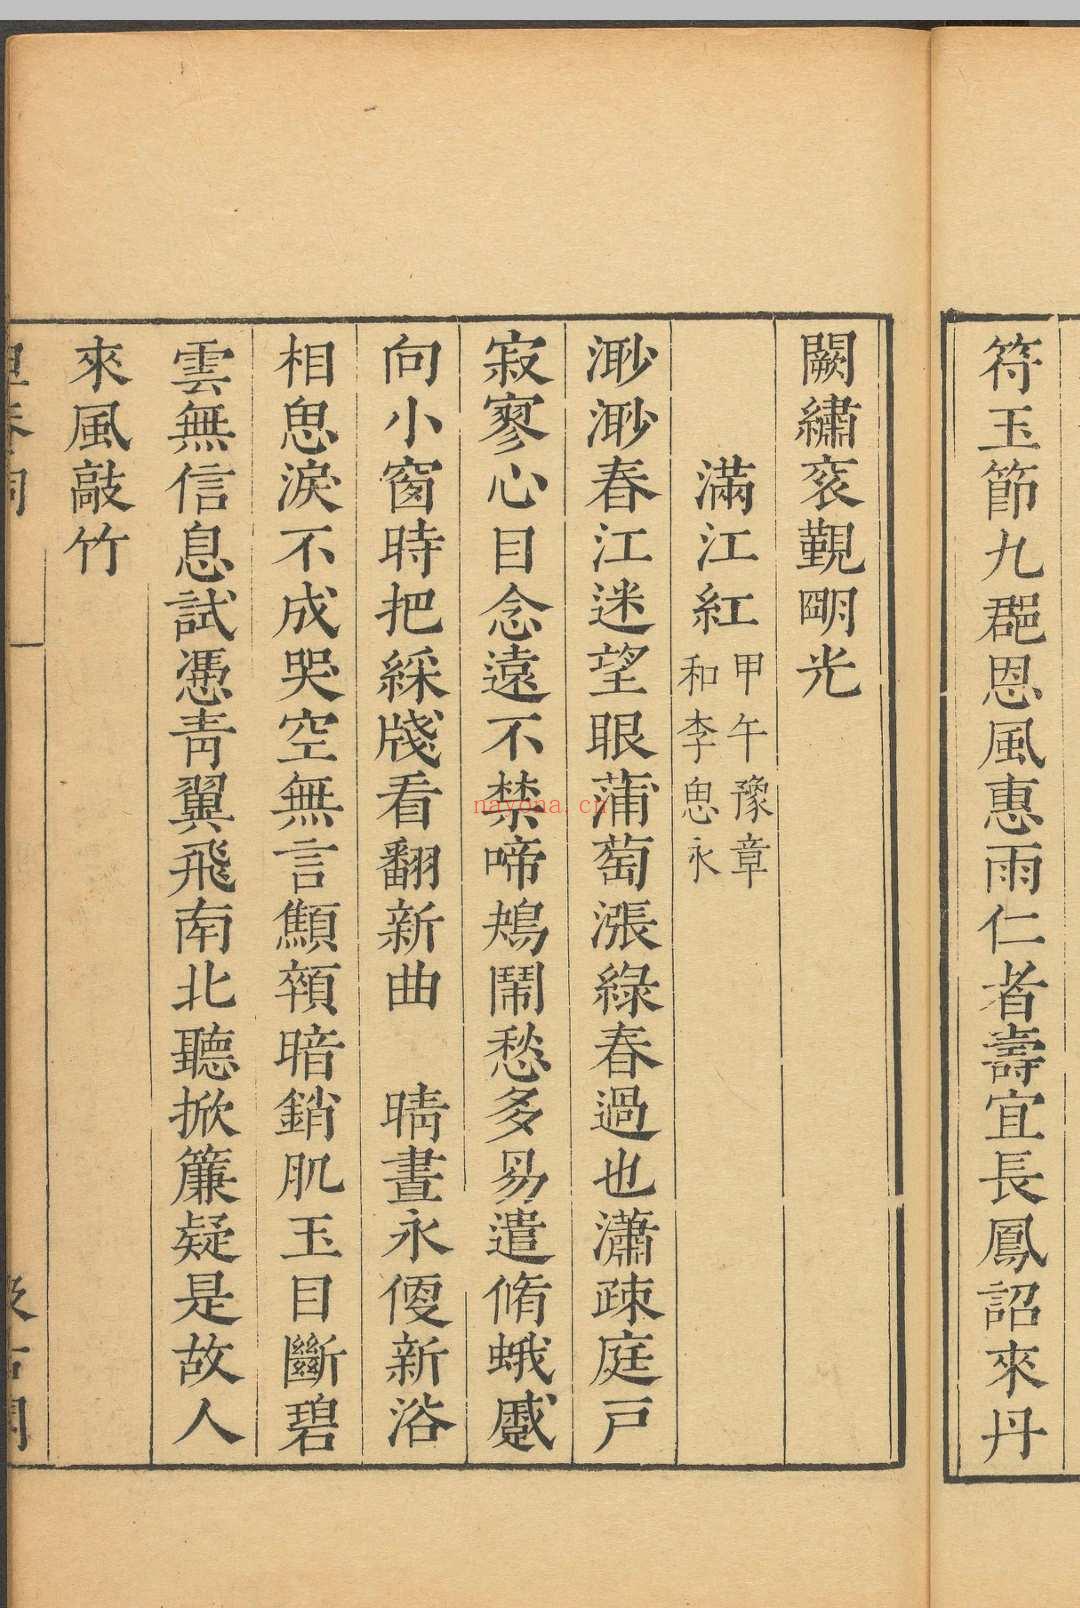 符玉節九郡恩風惠雨仁者壽宜長鳳詔來丹
闕繡衮覲明光
滿江紅
甲午豫章
和李思永
渺渺春江迷望眼蒲萄漲綠春過也瀟疎庭戸
寂寥心目念遠不禁啼鴂鬧愁多易遣脩蛾蹙
向小窗時把綵牋看翻新曲 晴晝永偠新浴
相思淚不成哭空無言顦顇暗銷肌玉目斷碧
雲無信息試憑靑翼飛南北聽掀簾疑是故人
來風敲竹
nayona.cn